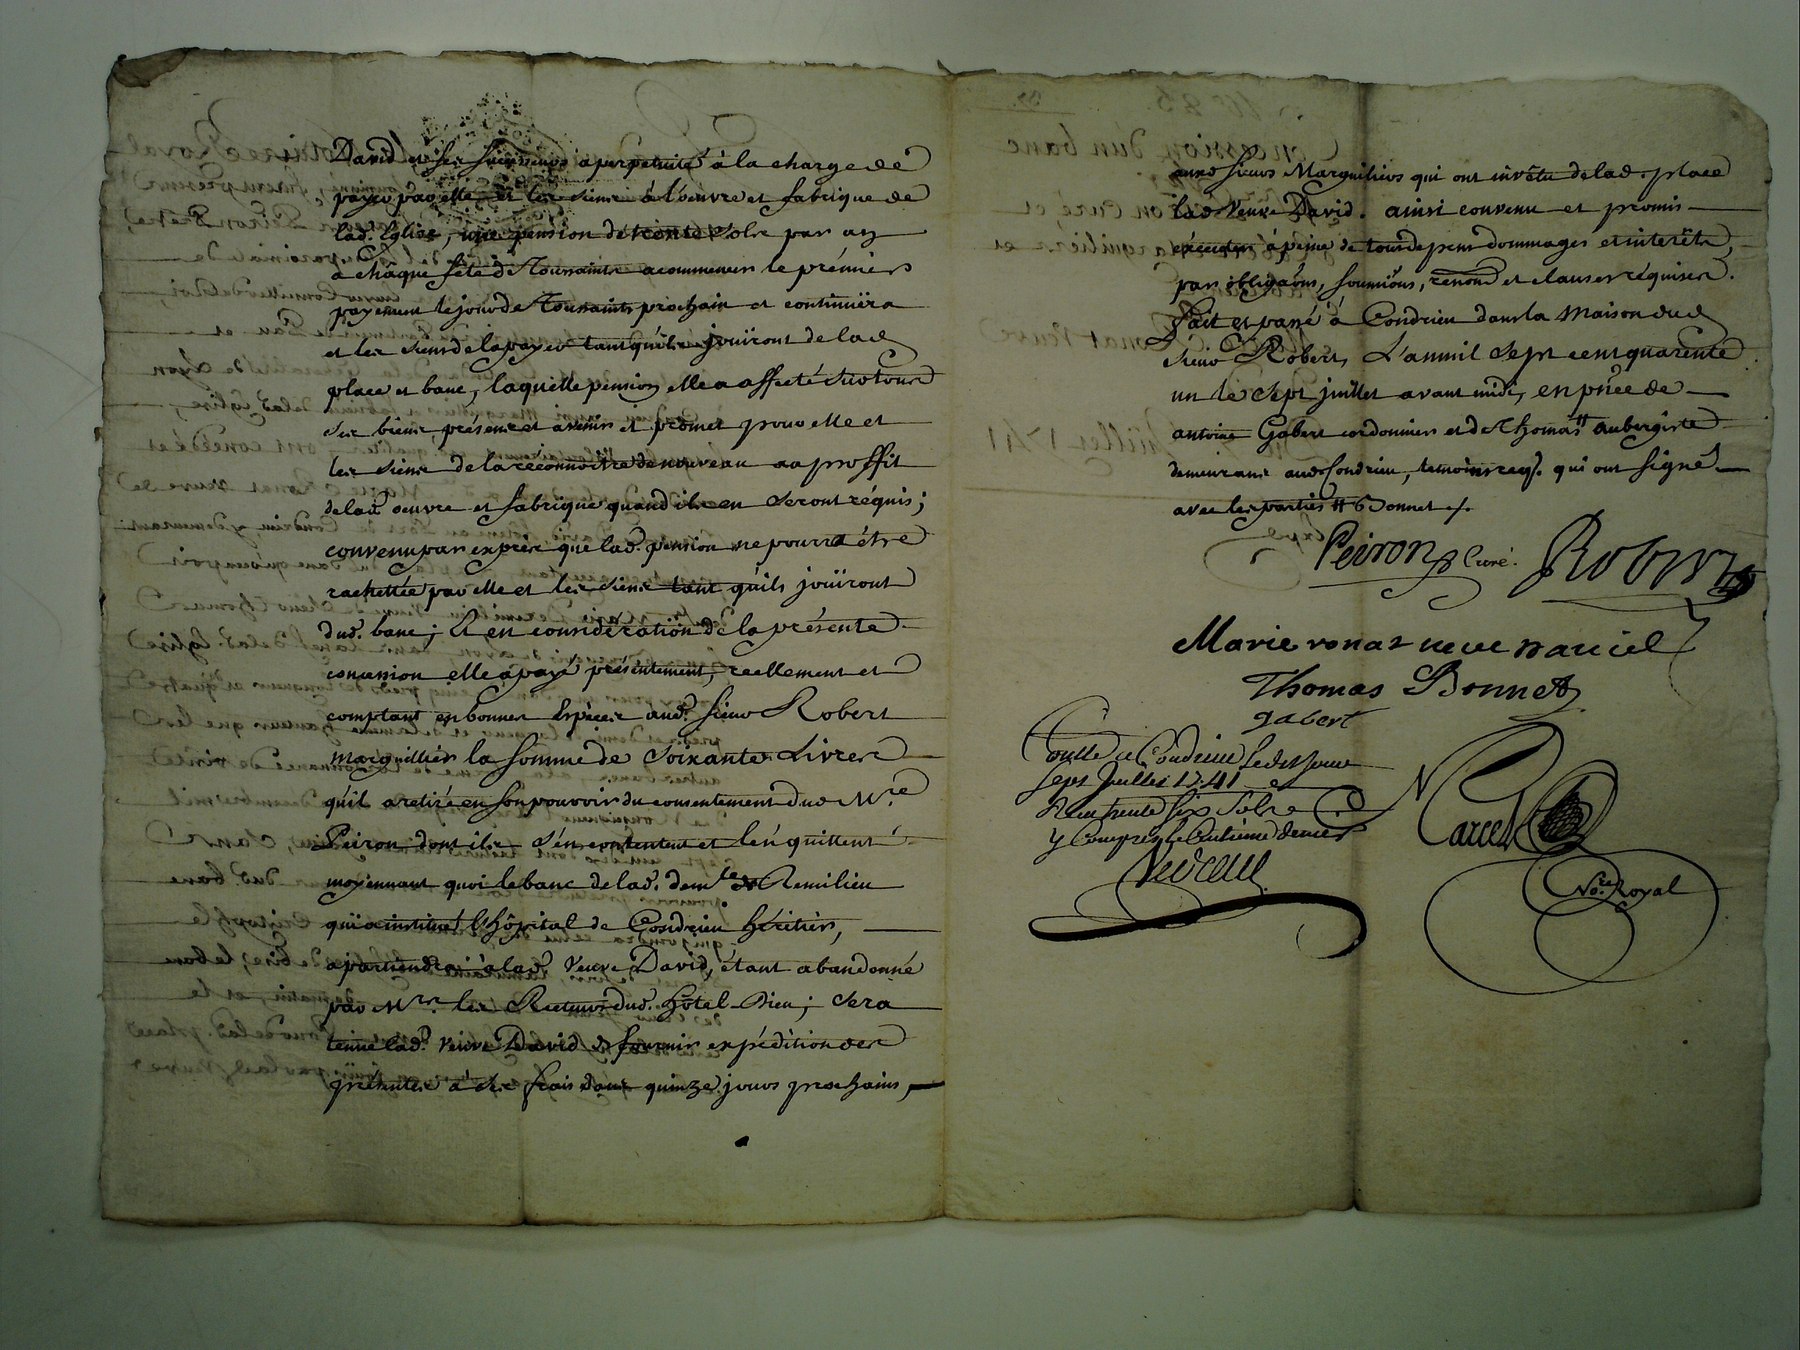 David et ses successeurs a perpetuité à la charge de
payer par elle et les siens à l'oeuvre et fabrique de
lad. Eglise, une pension de trente sols par an
a chaque fête de Toussaints acommencer le prémier
payement le jour de Toussaints prochain et continüera
et les siens de la payer tant qu'ils joüiront de lad
place et banc, laquelle pension elle a affecté sur tous
ses biens présents et avenir et promet pour elle et
les siens de la reconnoitre de nouveau au proffit
delad. oeuvre et fabrique quand ils en seront réquis;
convenu par exprès que lad. pension ne pourra être
rachettée par elle et les siens tant qu'ils joüiront
dud. banc; Et en considération de la présente
concession elle a payé présentement, reellement et
comptant en bonnes Espèces aud. sieur Robert
marguillier la somme de soixante Livres
qu'il a retiré en son pouvoir du consentement dud Mre.
Peiron dont ils s'en contentent et l'en quittent
moyennant quoi le banc delad. demlle Remilieu
qui a institué l'hôpital de Condrieu héritier,
apartiendra à lad. veuve David, étant abandonné
par Mrs. les Recteurs dud. hôtel-Dieu; sera
tenue lad. veuve David de fournir expédition des
présentes à ses frais dans quinze jours prochains,
auxd sieurs Marguilliers qui ont invêtu delad. place
lad. veuve David. ainsi convenu et promis
éxécuter à peine de tous depens dommages et intérêts,
par obligaons, soumions, renond et clauses réquises.
Fait et passé à Condrieu dans la maison dud
sieur Robert, L'an mil sept cent quarente
un le sept juillet avant midi, en pñce de
antoine Gabert cordonnier et de Thomas # aubergiste
demeurant aud Condrieu, temoins reqs. qui ont signé
avec les parties # Bonnet
Peiron Curé. Robert
Marie ronat veuve dauid
Thomas Bonnet
gabert
Collé a Condrieu led jour
sept Juillet 1741
Reçu trente six sols
y Compris le Centième denier
Marcel
Nore. Royal